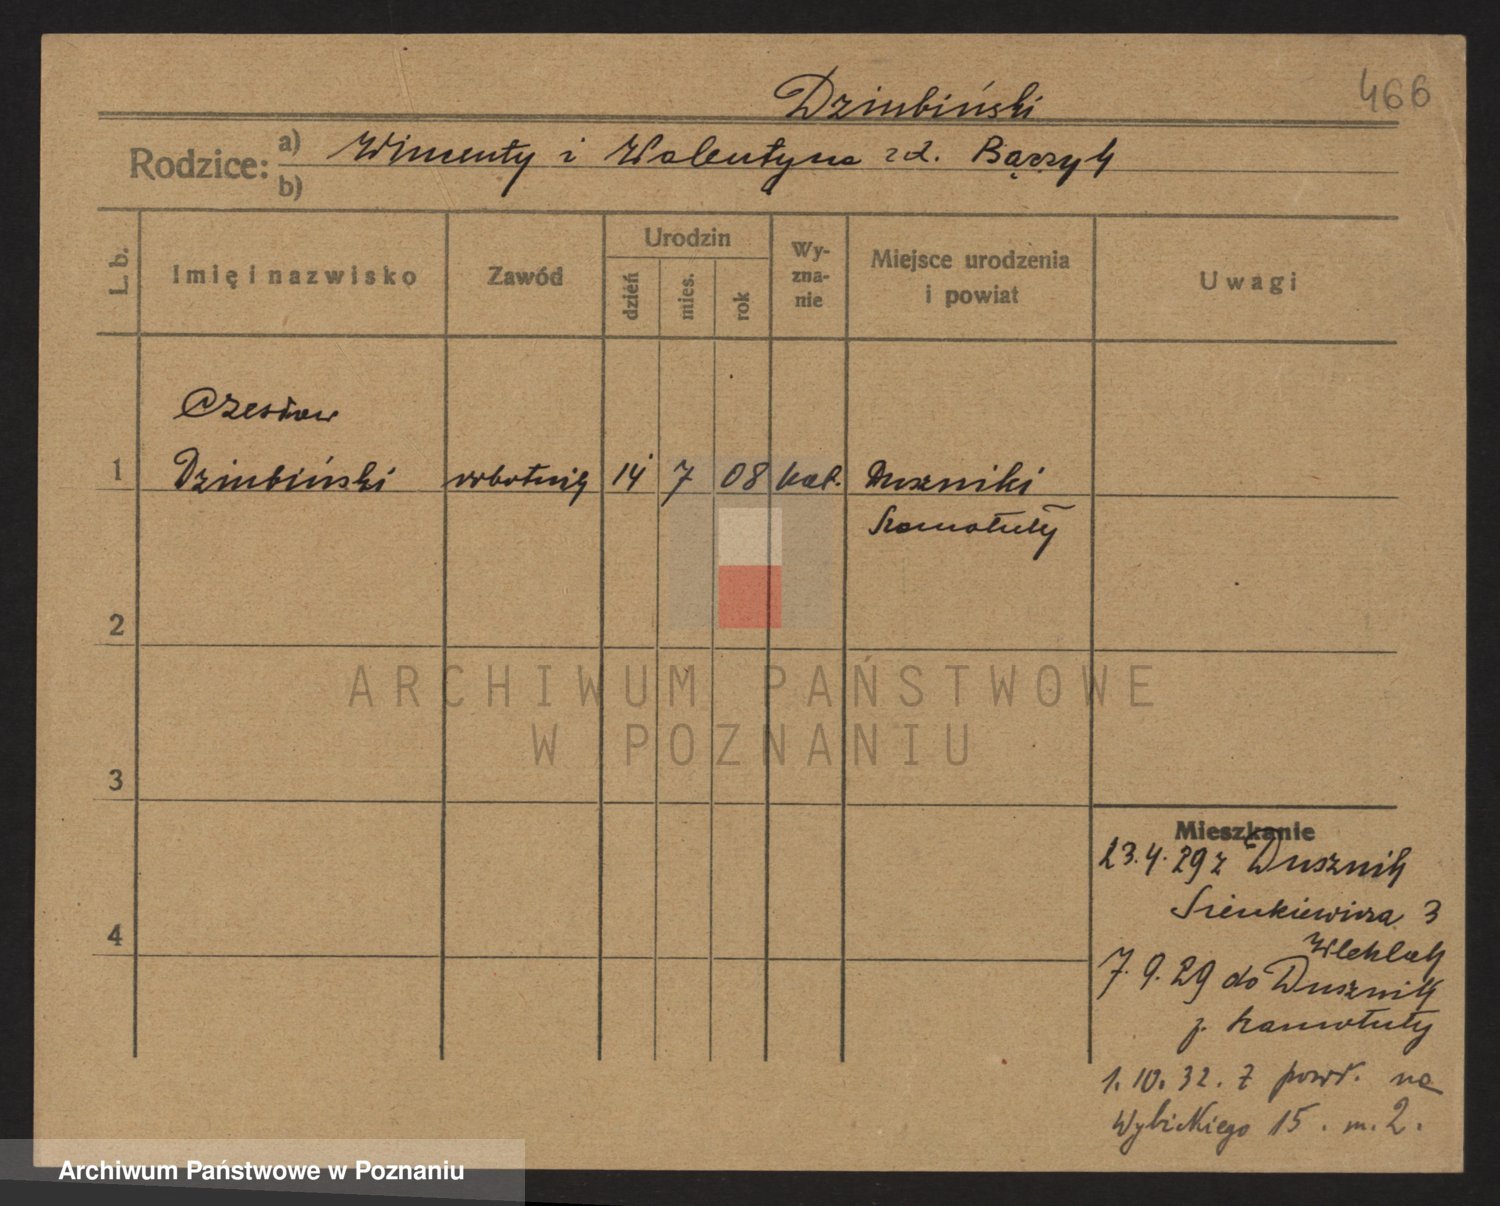 466
Dziubiński
Rodzice: a) Wincenty i Walentyna zd. Bączyk
b)
L. b.
Imię i nazwisko
Zawód
Urodzin
dzień
mies.
rok
Wy-
zna-
nie
Miejsce urodzenia
i powiat
Uwagi
Czesław
1 Dziubiński robotnik 14 7 08 kat. Duszniki
Szamotuły
2
3
4
ARCHIWUM PAŃSTWOWE
W POZNANIU
Mieszkanie
23.4.29 z Dusznik
Sienkiewicza 3
7.9.29 do Dusznik
p. Szamotuły
1.10.32. z powr. na
Wybickiego 15. m. 2.
Archiwum Państwowe w Poznaniu